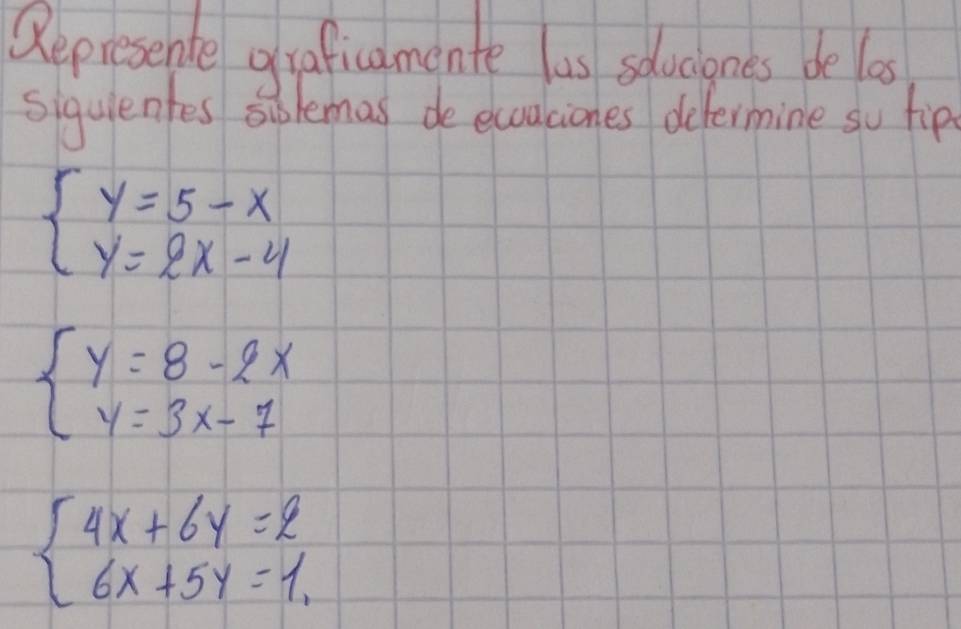 Represente graficamente las soluciones de los
siguientes sistemas de ecuaciones determine su tipo
{ y = 5 - x
{ y = 2x - 4
{ y = 8 - 2x
{ y = 3x - 7
{ 4x + 6y = 2
{ 6x + 5y = 1.